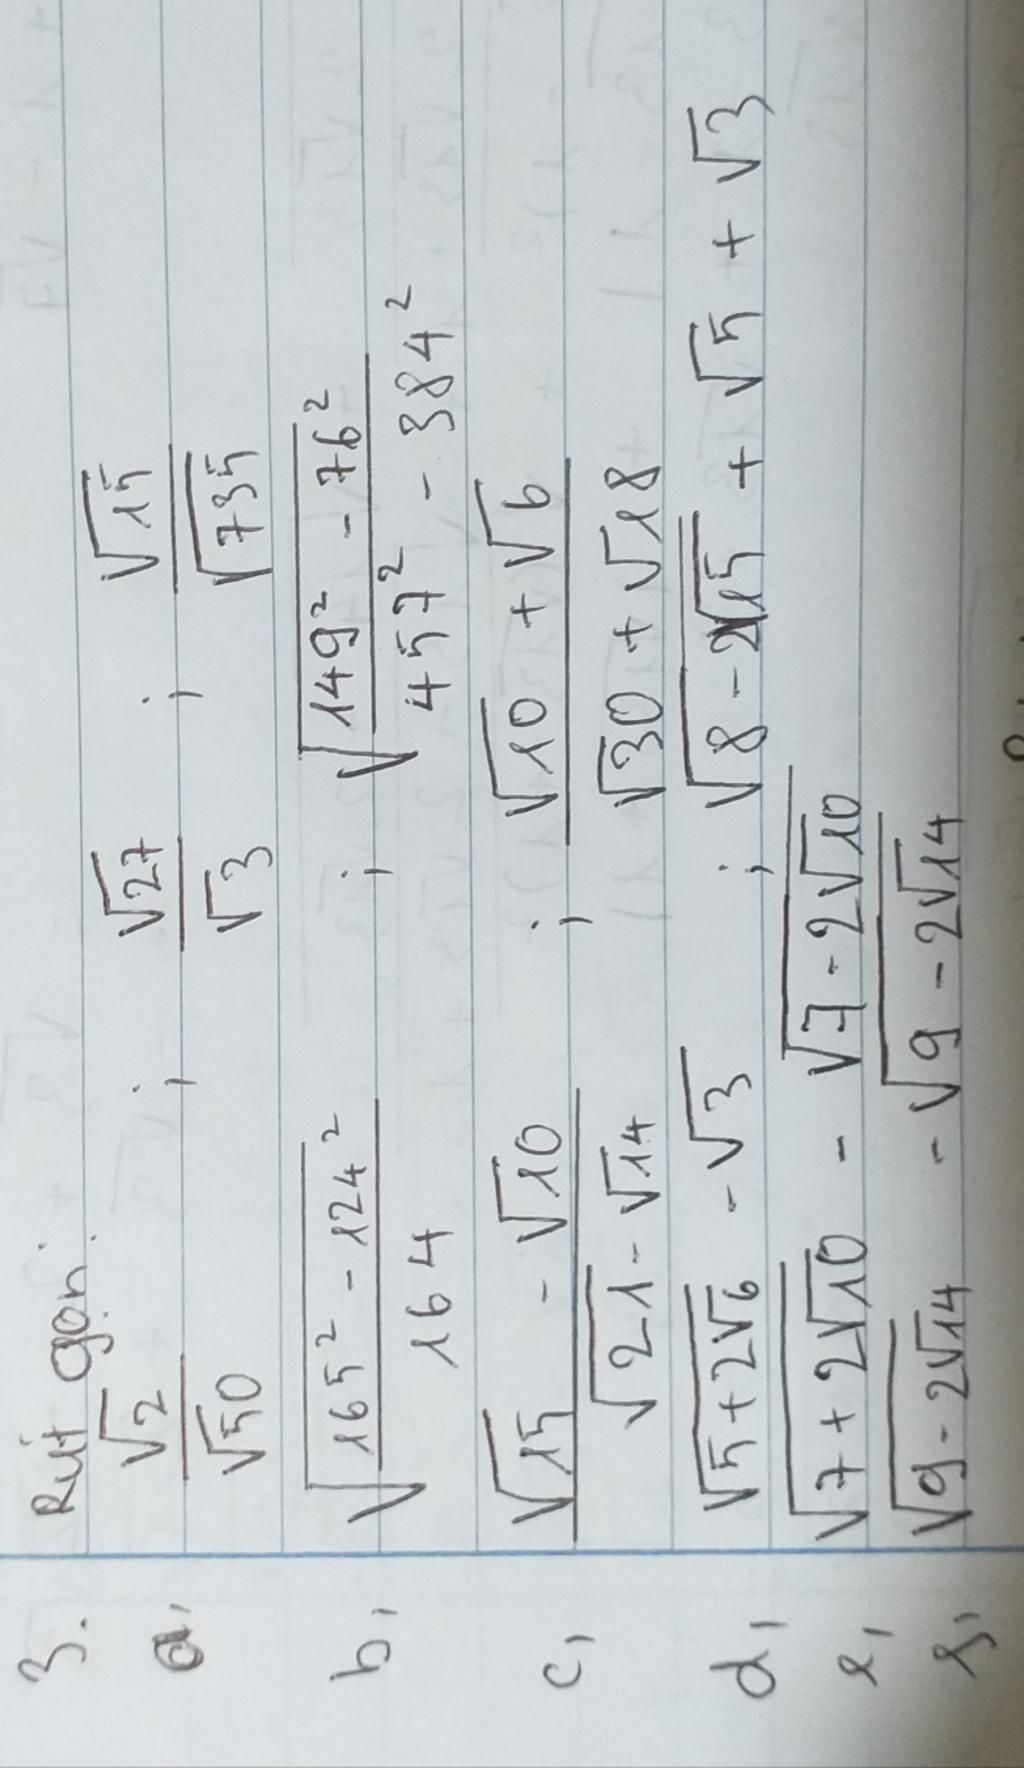 3. Rút gọn:
a, √2/√50 ; √27/√3 ; √15/√735
b, √((165² - 124²)/164) ; √((149² - 76²)/(457² - 384²))
c, (√15 - √10)/(√21 - √14) ; (√10 + √6)/(√30 + √18)
d, √(5+2√6) - √3 ; √(8 - 2√15) + √5 + √3
e, √(7 + 2√10) - √(7 - 2√10)
g, √(9 - 2√14) - √(9 - 2√14)